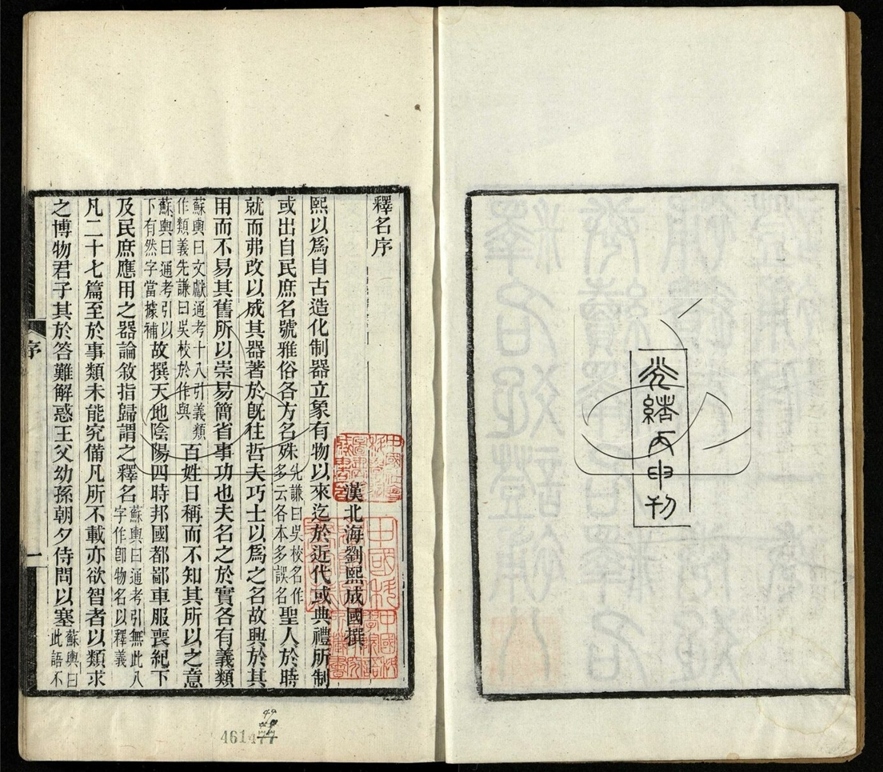 光緒丙申刊
釋名序
漢北海劉熙成國撰
熙以爲自古造化制器立象有物以來迄於近代或典禮所制
或出自民庶名號雅俗各方名殊先謙曰吳校名作多云各本多誤名聖人於時
就而弗改以成其器著於既往哲夫巧士以爲之名故興於其
用而不易其舊所以崇易簡省事功也夫名之於實各有義類
蘇輿曰文獻通考十八引義類作類義先謙曰吳校於作與百姓日稱而不知其所以之意
蘇輿曰通考引以下有然字當據補故撰天地陰陽四時邦國都鄙車服喪紀下
及民庶應用之器論敘指歸謂之釋名蘇輿曰通考引無此八字作卽物名以釋義
凡二十七篇至於事類未能究備凡所不載亦欲智者以類求
之博物君子其於答難解惑王父幼孫朝夕侍問以塞蘇輿曰此語不
序
一
461477